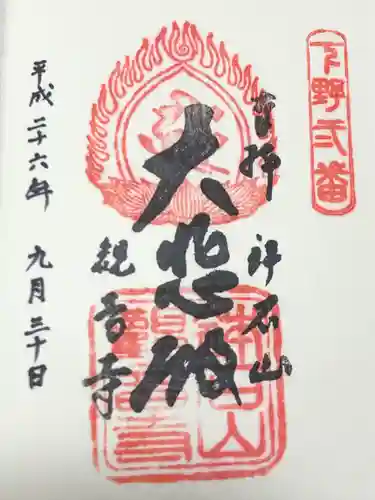 下野弐番
奉拝
許石山
大悲殿
観音寺
平成二十六年 九月三十日